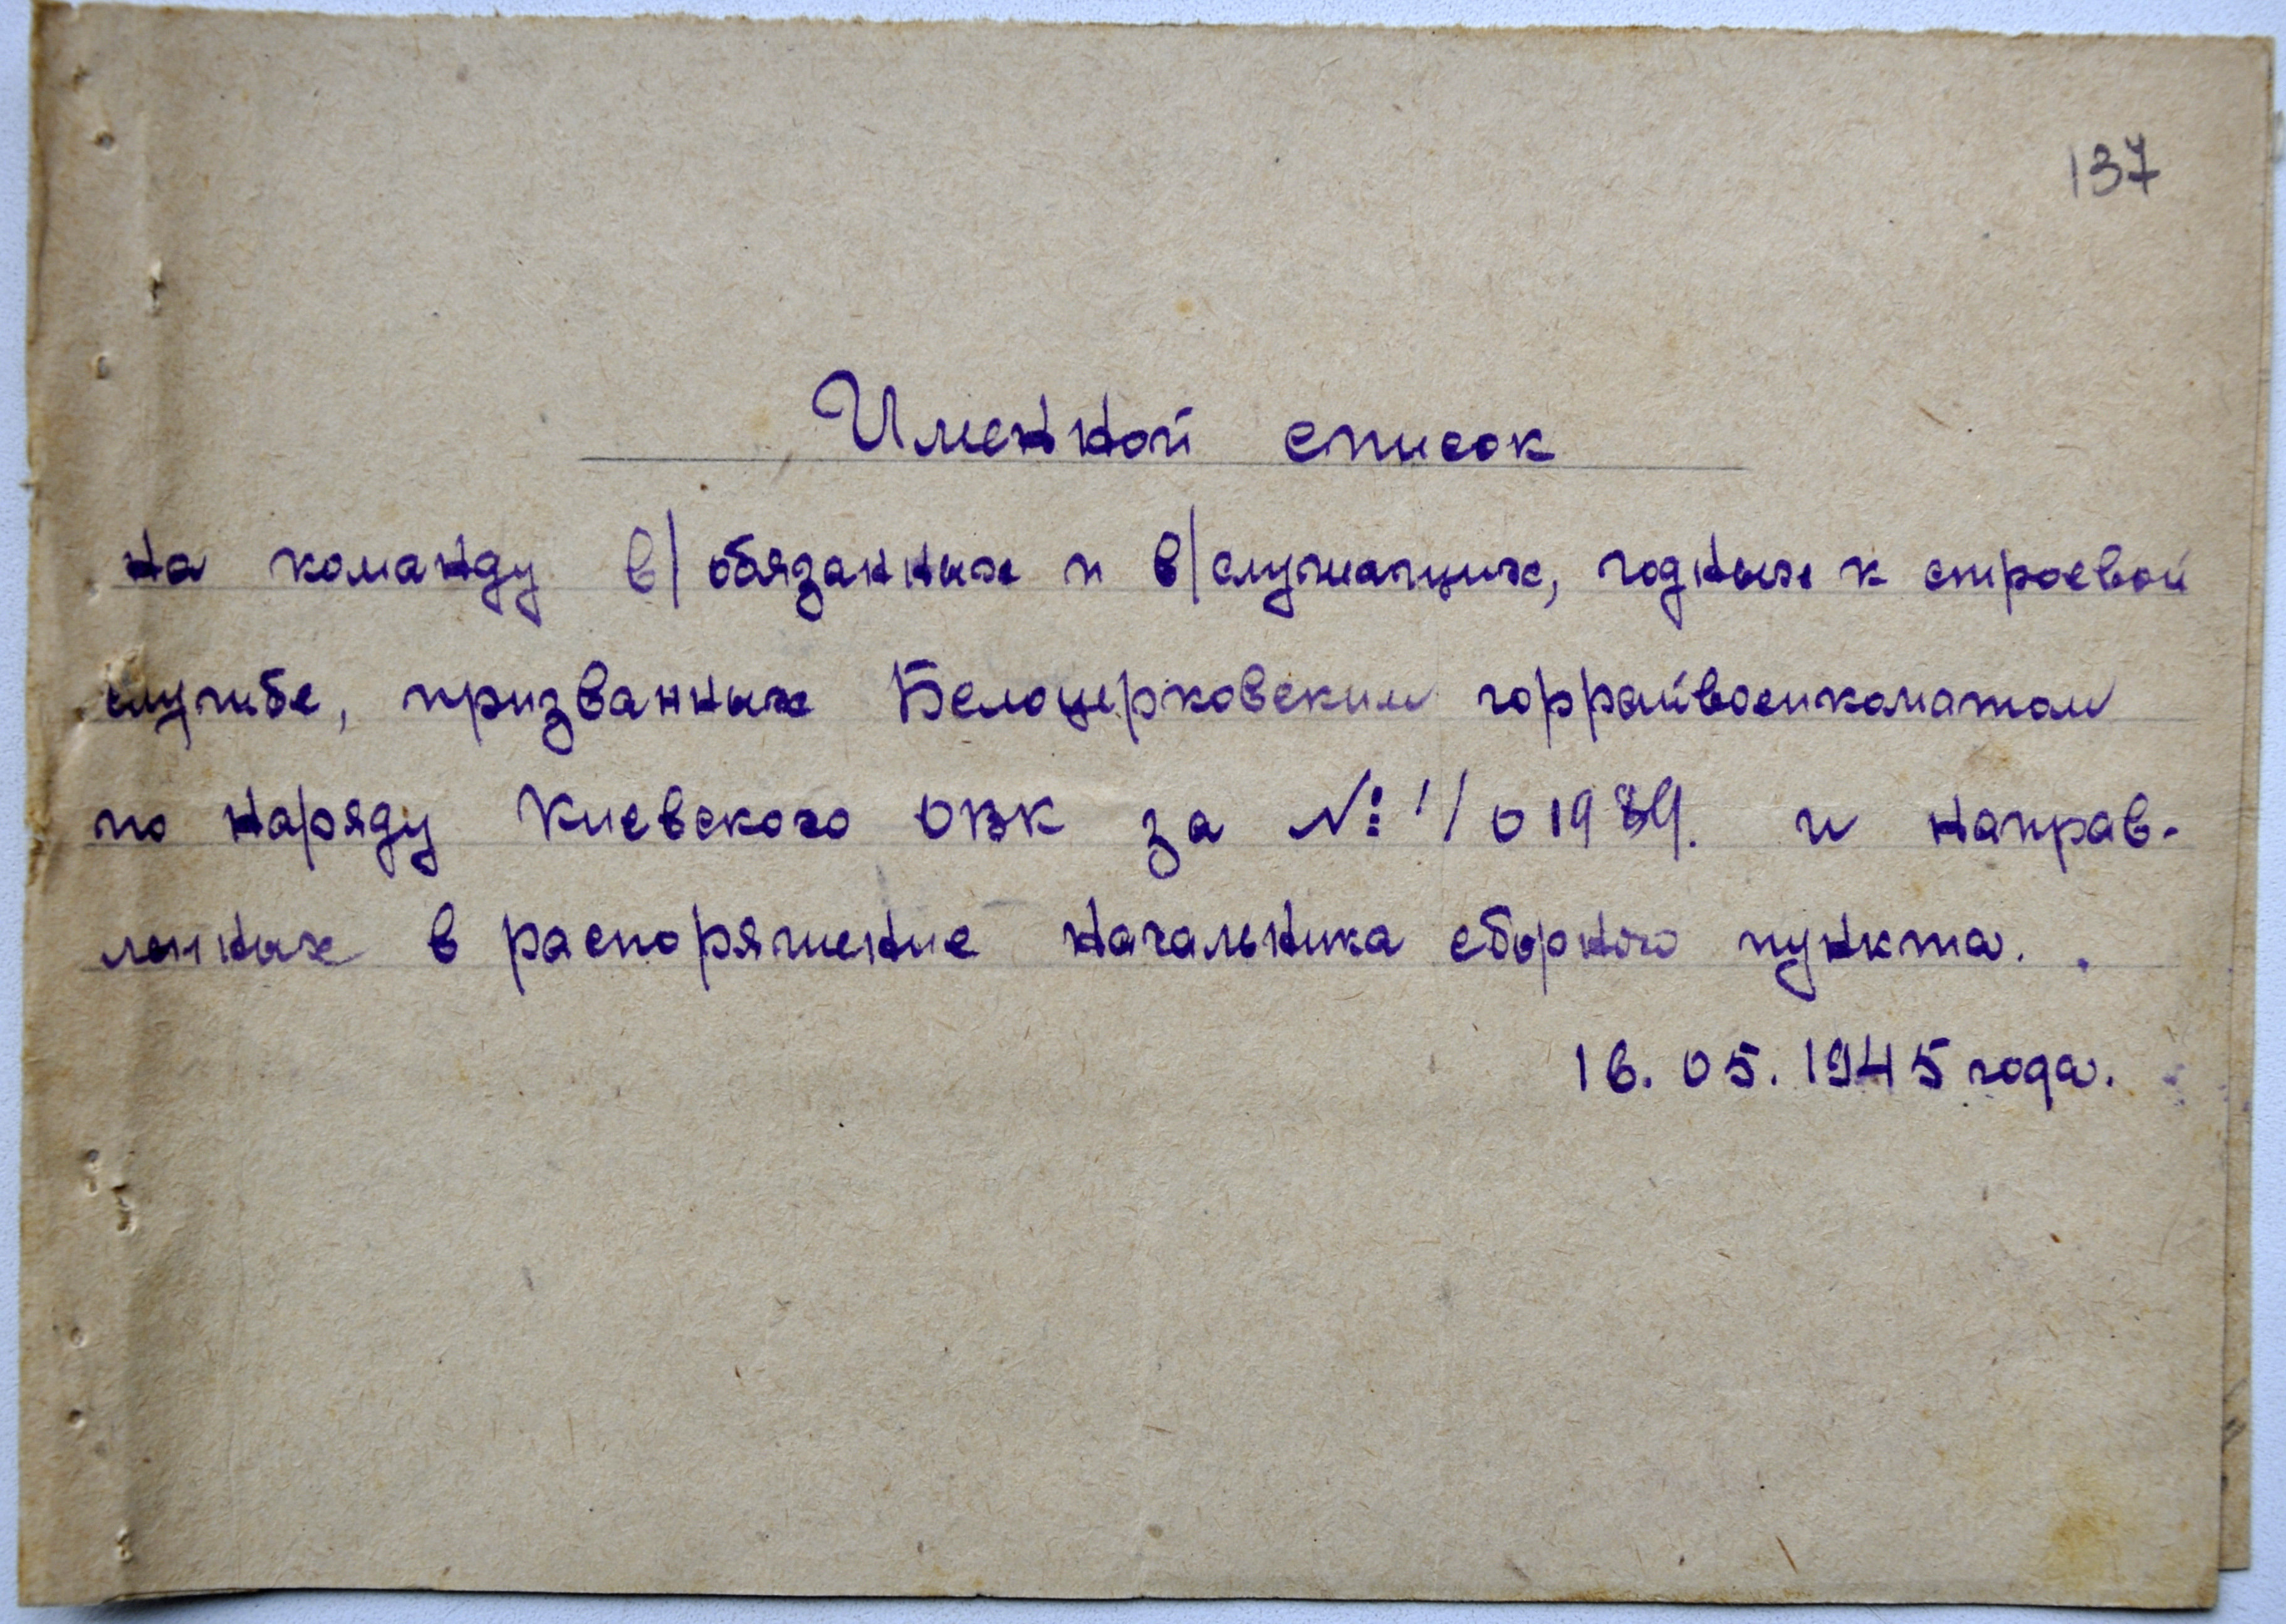 137
Именной список
на команду в/обязанных и в/служащих, годных к строевой
службе, призванных Белоцерковским горрайвоенкоматом
по наряду Киевского ОВК за №: 1/01989. и направ-
ленных в распоряжение начальника сборного пункта.
16.05.1945 года.